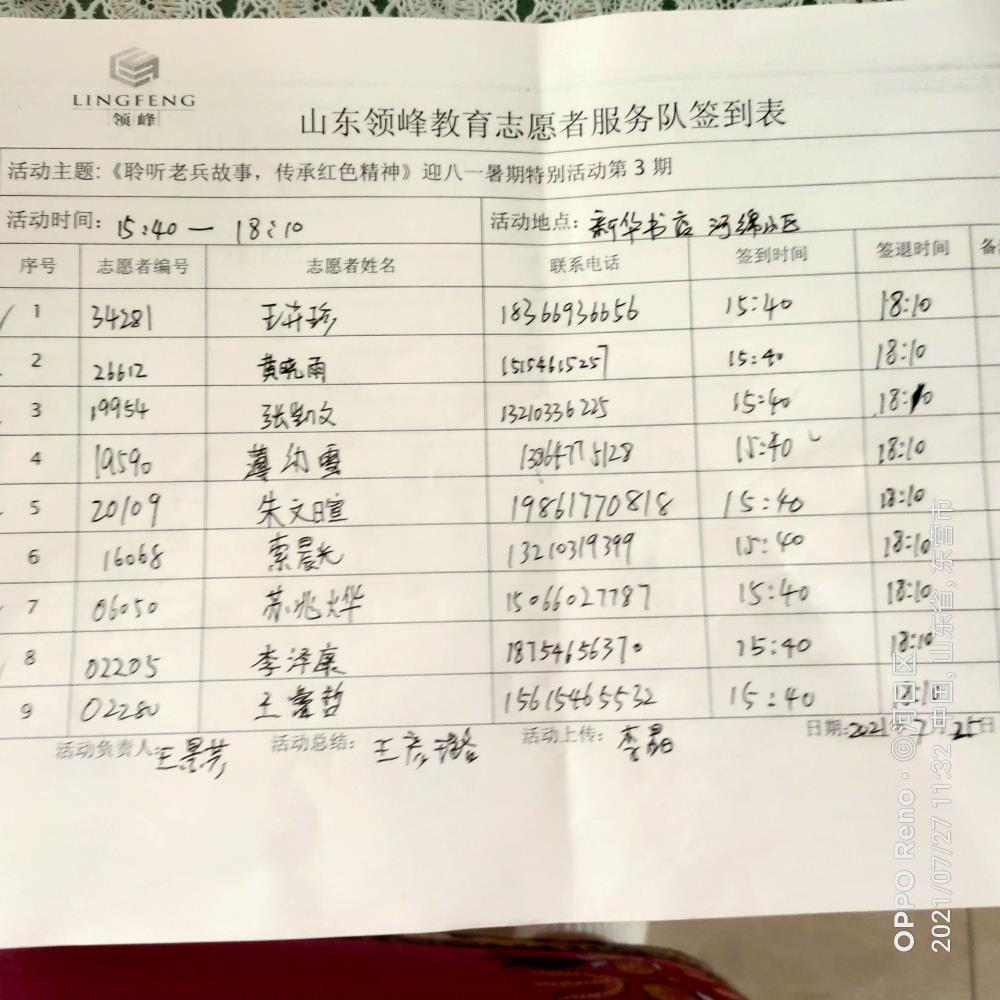 LINGFENG
领峰
山东领峰教育志愿者服务队签到表
活动主题:《聆听老兵故事，传承红色精神》迎八一暑期特别活动第 3 期
活动时间: 15:40 — 18:10 活动地点: 新华书店 河绵小区
序号 志愿者编号 志愿者姓名 联系电话 签到时间 签退时间
1 34281 王卉珍 18366936656 15:40 18:10
2 26612 黄晓雨 15154615257 15:40 18:10
3 19954 张凯文 13210336225 15:40 18:10
4 19590 15:40 18:10
5 20109 朱文暄 19861770818 15:40 18:10
6 16068 索晨光 13210319399 15:40 18:10
7 06050 苏兆烨 15066027787 15:40 18:10
8 02205 李泽康 18754656370 15:40 18:10
9 02280 王鑫哲 15615465532 15:40 18:10
活动负责人: 活动总结: 王彦璐 活动上传: 李晶 日期: 2021年7月25日
OPPO Reno · ©河口区
2021/07/27 11:32 中国,山东省,东营市